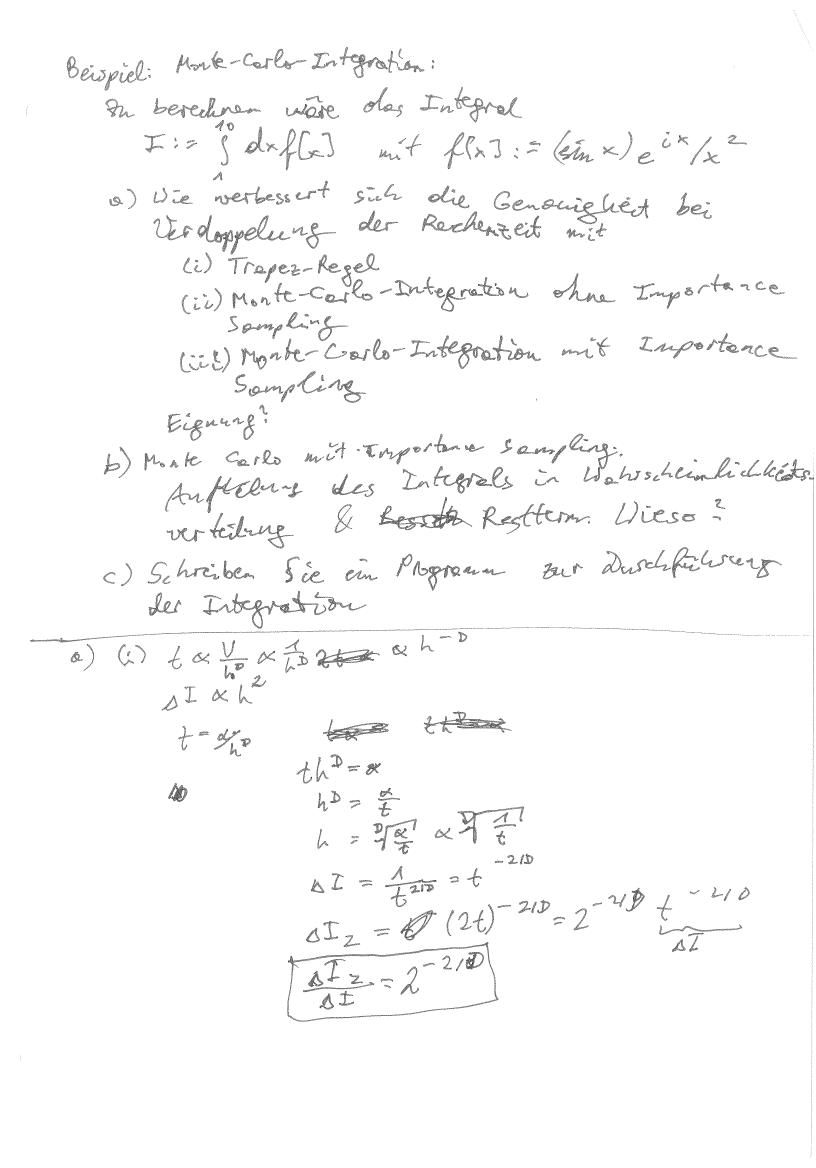 Beispiel: Monte-Carlo-Integration:
Zu berechnen wäre das Integral
I := ∫₁¹⁰ dx f[x] mit f[x] := (sin x) e^{ix}/x²
a) Wie verbessert sich die Genauigkeit bei
Verdoppelung der Rechenzeit mit
(i) Trapez-Regel
(ii) Monte-Carlo-Integration ohne Importance
Sampling
(iii) Monte-Carlo-Integration mit Importance
Sampling
Eignung?
b) Monte Carlo mit Importance Sampling:
Aufteilung des Integrals in Wahrscheinlichkeits-
verteilung & Restterm. Wieso?
c) Schreiben Sie ein Programm zur Durchführung
der Integration
a) (i) t ∝ V/h^D ∝ 1/h^D ∝ h^{-D}
ΔI ∝ h²
t = α/h^D
th^D = α
h^D = α/t
h = ᴰ√(α/t) ∝ ᴰ√(1/t)
ΔI = 1/t^{2/D} = t^{-2/D}
ΔI₂ = (2t)^{-2/D} = 2^{-2/D} t^{-2/D}
ΔI
ΔI₂/ΔI = 2^{-2/D}